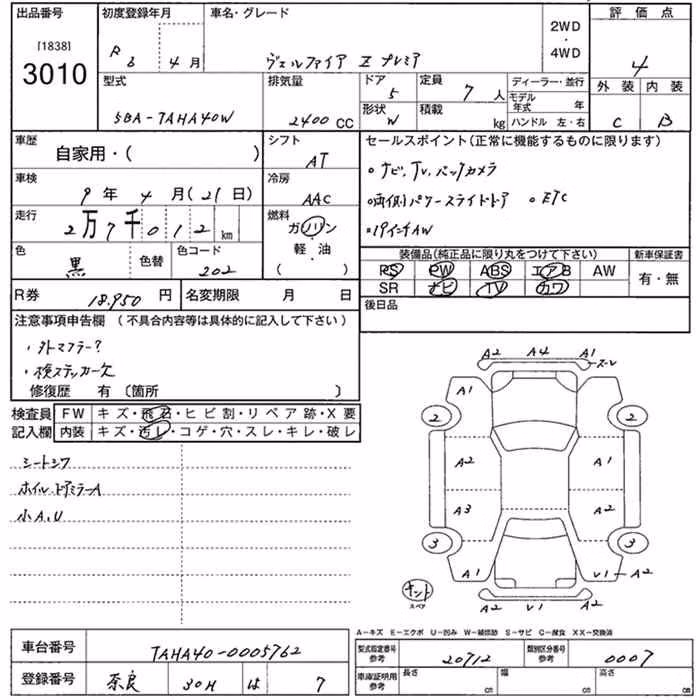 出品番号 初度登録年月 車名・グレード 評価点
[1838] 3010 R6 4月 ヴェルファイア Z プレミア 2WD・4WD 4
型式 排気量 ドア 5 定員 7人 ディーラー・並行 外装 内装
モデル年式 年
5BA-TAHA40W 2400 CC 形状 W 積載 kg ハンドル 左・右 C B
車歴 シフト セールスポイント(正常に機能するものに限ります)
自家用・( ) AT ・ナビ,TV,バックカメラ
車検 冷房 ・両側パワースライドドア ・ETC
9年4月(21日) AAC
走行 燃料 ・19インチAW
2万7千012km ガソリン
軽・油
( )
色 色替 色コード
黒 202
装備品(純正品に限り丸をつけて下さい) 新車保証書
PS PW ABS エアB AW 有・無
SR ナビ TV カワ
R券 18.950円 名変期限 月 日 後日品
注意事項申告欄(不具合内容等は具体的に記入して下さい)
・外マフラー?
・検ステッカー欠
修復歴 有〔箇所 〕
検査員 FW キズ・飛石・ヒビ割・リペア跡・X要
記入欄 内装 キズ・汚レ・コゲ・穴・スレ・キレ・破レ
シートシワ
ホイル.ドアミラーA
小A.U
A2 A4 A1
スーレ
A1
2 2
A2 A1
A3 A2
3 3
A1 V1-A2
ナット
スペア
A2 V1 A2
A-キズ E-エクボ U-凹み W-補修跡 S-サビ C-腐食 XX-交換済
車台番号 TAHA40-0005762 型式指定番号参考 20712 類別区分番号参考 0007
登録番号 奈良 30H は 7 車庫証明用参考 長さ cm 幅 cm 高さ cm